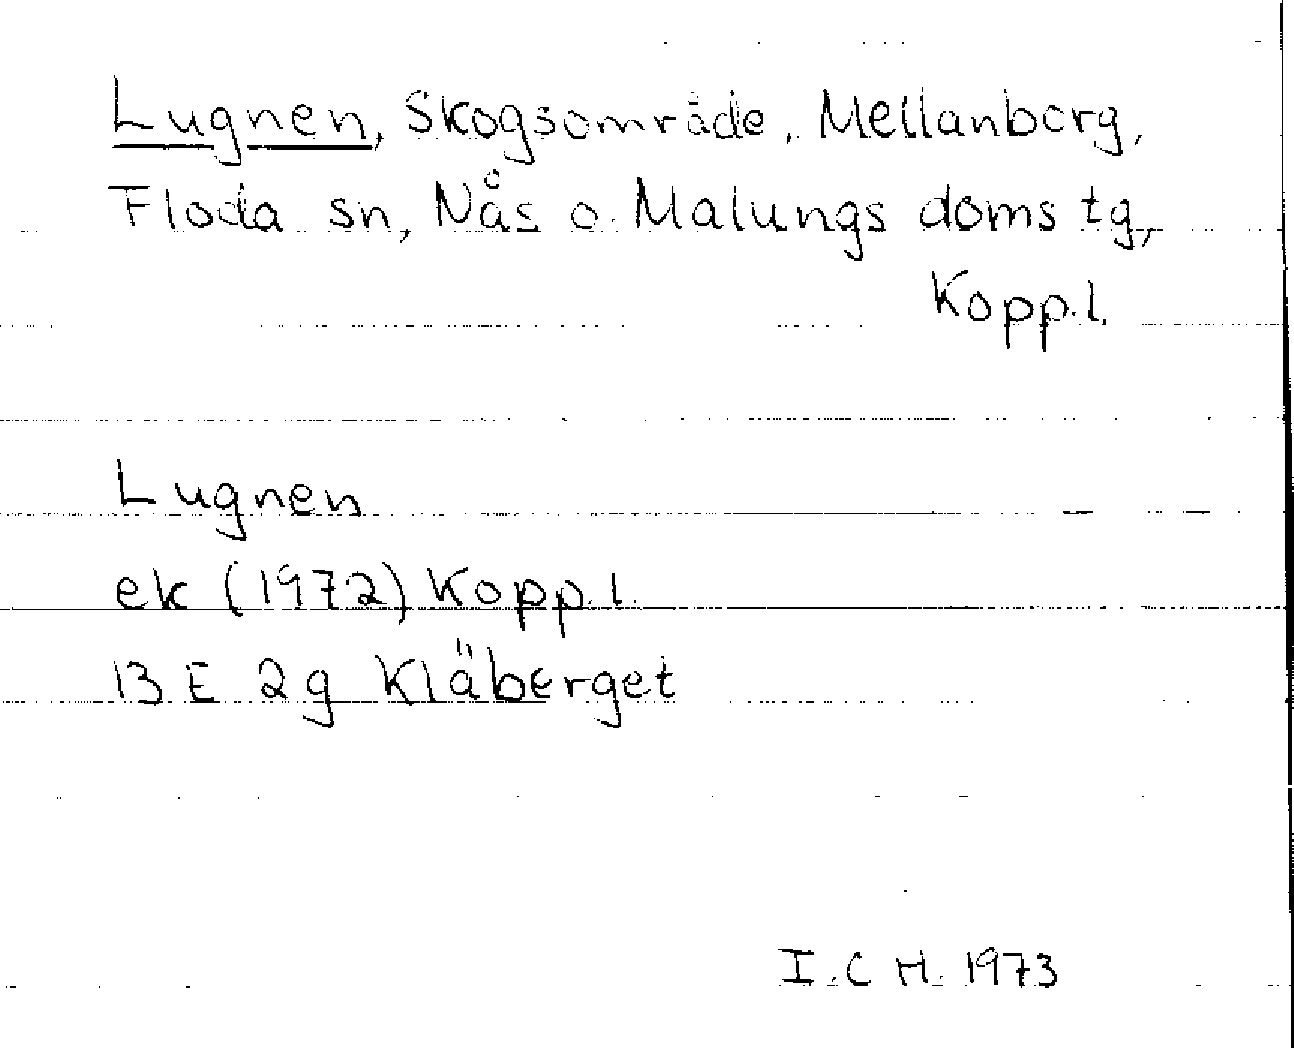 Lugnen, Skogsområde, Mellanborg,
Floda sn, Nås o. Malungs doms tg,
Kopp.l.
Lugnen
ek (1972) Kopp.l.
13 E 2g Kläberget
I.C H. 1973